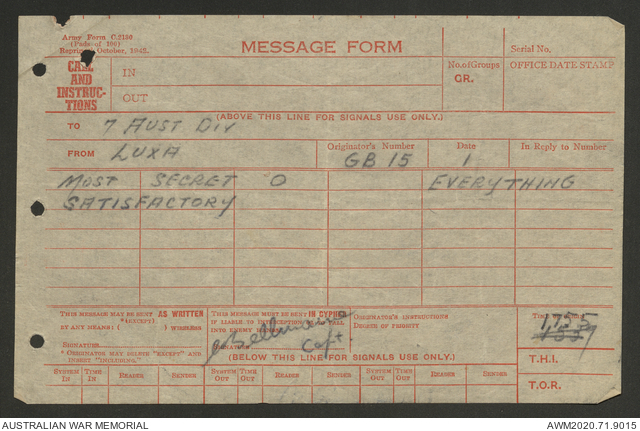 Army Form C.2130
(Pads of 100)
Reprint October, 1942.
MESSAGE FORM
Serial No.
CALL AND INSTRUC-TIONS
IN
OUT
No. of Groups
GR.
OFFICE DATE STAMP
(ABOVE THIS LINE FOR SIGNALS USE ONLY.)
TO 7 AUST DIV
FROM LUXA
Originator's Number
GB 15
Date
1
In Reply to Number
MOST SECRET O EVERYTHING
SATISFACTORY
THIS MESSAGE MAY BE SENT AS WRITTEN
*(EXCEPT)
BY ANY MEANS: ( ) WIRELESS
SIGNATURE
* ORIGINATOR MAY DELETE "EXCEPT" AND INSERT "INCLUDING."
THIS MESSAGE MUST BE SENT IN CYPHER
IF LIABLE TO INTERCEPTION OR TO FALL
INTO ENEMY HANDS
Capt
ORIGINATOR'S INSTRUCTIONS
DEGREE OF PRIORITY
1755
T.H.I.
T.O.R.
(BELOW THIS LINE FOR SIGNALS USE ONLY.)
SYSTEM IN TIME IN READER SENDER SYSTEM OUT TIME OUT READER SENDER SYSTEM OUT TIME OUT READER SENDER
AUSTRALIAN WAR MEMORIAL
AWM2020.71.9015